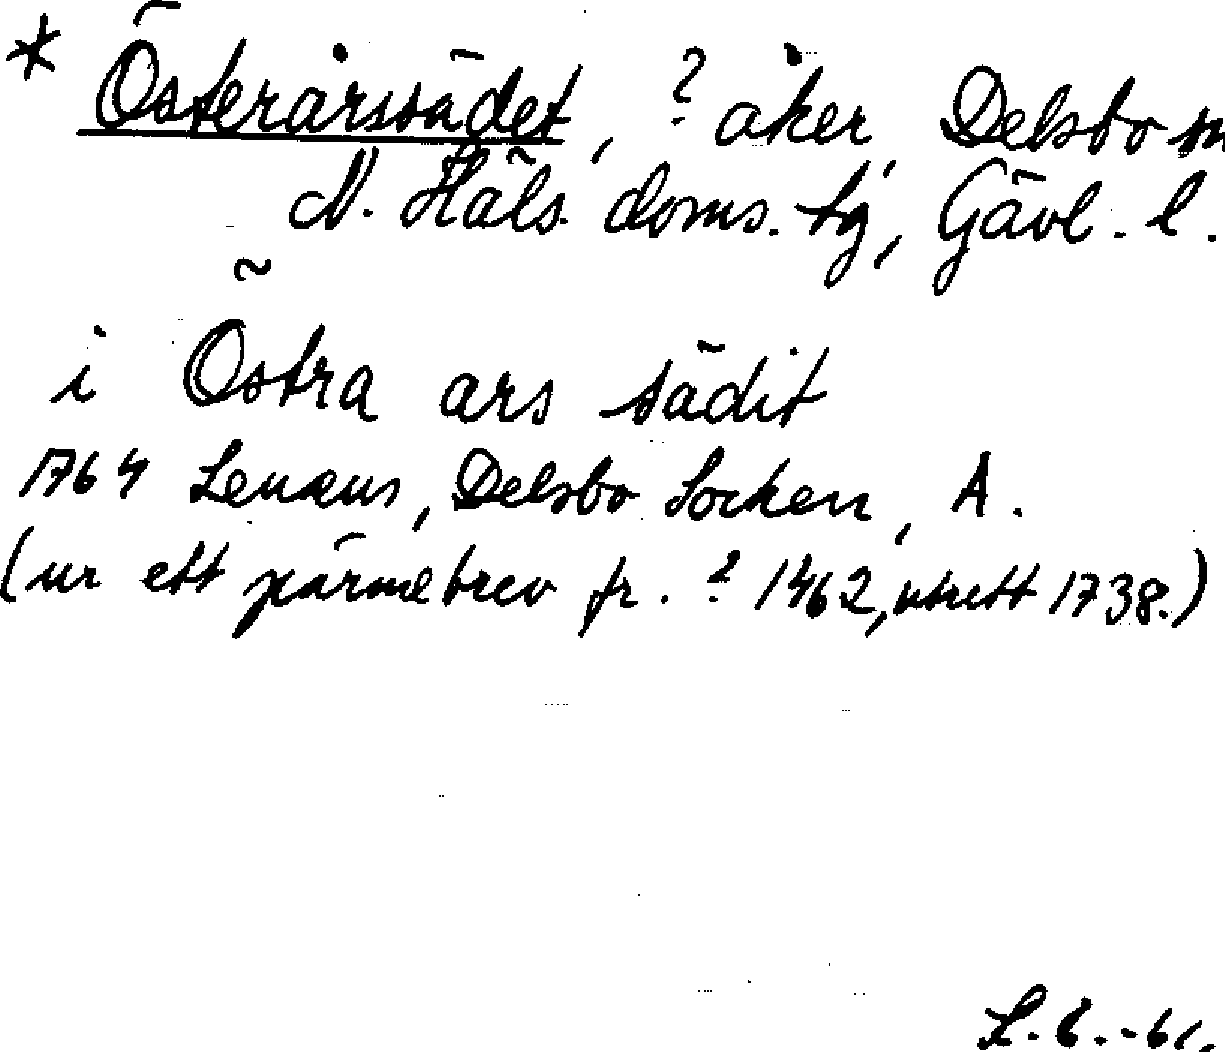 * Österårssädet, ? åker, Delsbo sn
N. Häls. doms. tg, Gävl. l.
i Östra ars sädit
1764 Lenæus, Delsbo Socken, A.
(ur ett pärmebrev fr. ? 1462, utsett 1738.)
L. B. -61.